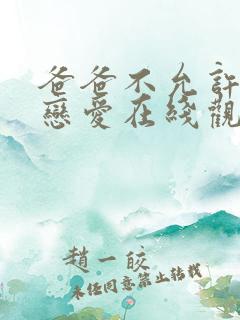 爸爸不允許
戀愛在綫觀
趙一皎
未經同意禁止轉載